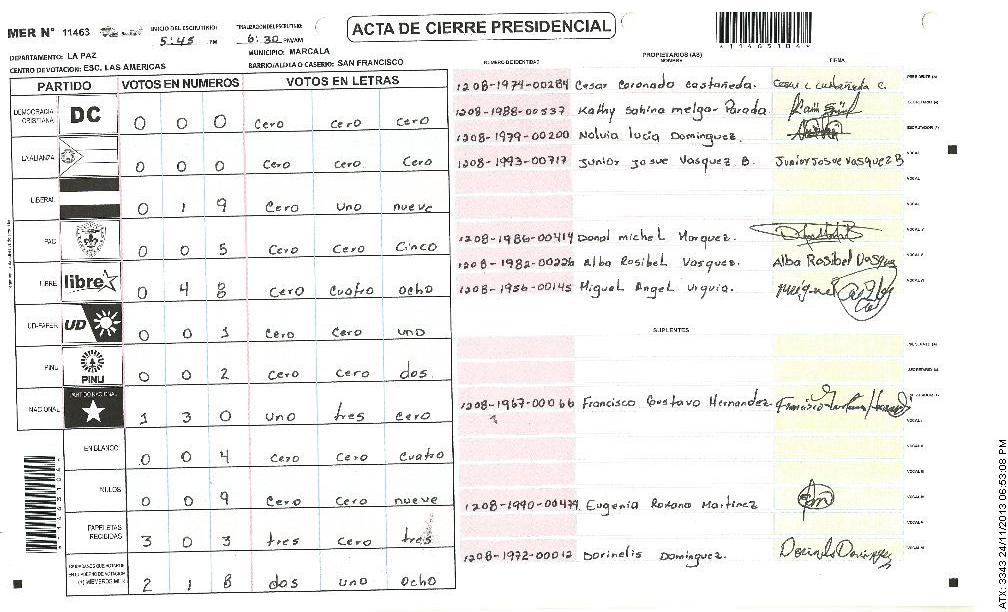 MER N° 11463
INICIO DEL ESCRUTINIO: 5:45 PM
FINALIZACION DEL ESCRUTINIO: 6:30 PM/AM
ACTA DE CIERRE PRESIDENCIAL
DEPARTAMENTO: LA PAZ
MUNICIPIO: MARCALA
CENTRO DE VOTACION: ESC. LAS AMERICAS
BARRIO/ALDEA O CASERIO: SAN FRANCISCO
PARTIDO VOTOS EN NUMEROS VOTOS EN LETRAS
DEMOCRACIA CRISTIANA DC 0 0 0 Cero Cero Cero
LA ALIANZA 0 0 0 Cero Cero Cero
LIBERAL 0 1 9 Cero Uno nueve
PAC 0 0 5 Cero Cero Cinco
LIBRE libre 0 4 8 Cero Cuatro ocho
UD-FAPER UD 0 0 1 Cero Cero uno
PINU PINU 0 0 2 Cero Cero dos
NACIONAL PARTIDO NACIONAL 1 3 0 uno tres Cero
EN BLANCO 0 0 4 Cero Cero Cuatro
NULOS 0 0 9 Cero Cero nueve
PAPELETAS RECIBIDAS 3 0 3 tres Cero tres
2 1 8 dos uno ocho
PROPIETARIOS (AS)
NUMERO DE IDENTIDAD NOMBRE FIRMA
1208-1974-00284 Cesar Coronado Castañeda. PRESIDENTE (A)
1208-1988-00537 Kathy Sahina melgar Parada SECRETARIO (A)
1208-1979-00200 Nolvia lucia Dominguez. ESCRUTADOR (A)
1208-1993-00717 Junior Josue Vasquez B. Junior Josue Vasquez B VOCAL
VOCAL
VOCAL
1208-1986-00414 Donal michel Marquez. VOCAL
1208-1982-00226 Alba Rosibel Vasquez. Alba Rosibel Vasquez VOCAL
1208-1956-00145 Miguel Angel Urquia. VOCAL
SUPLENTES
1208-1967-00066 Francisco Gustavo Hernandez
1208-1990-00479 Eugenia Rosano Martinez
1208-1972-00012 Dorinelis Dominguez.
ATX: 3343 24/11/2013 06:53:08 PM